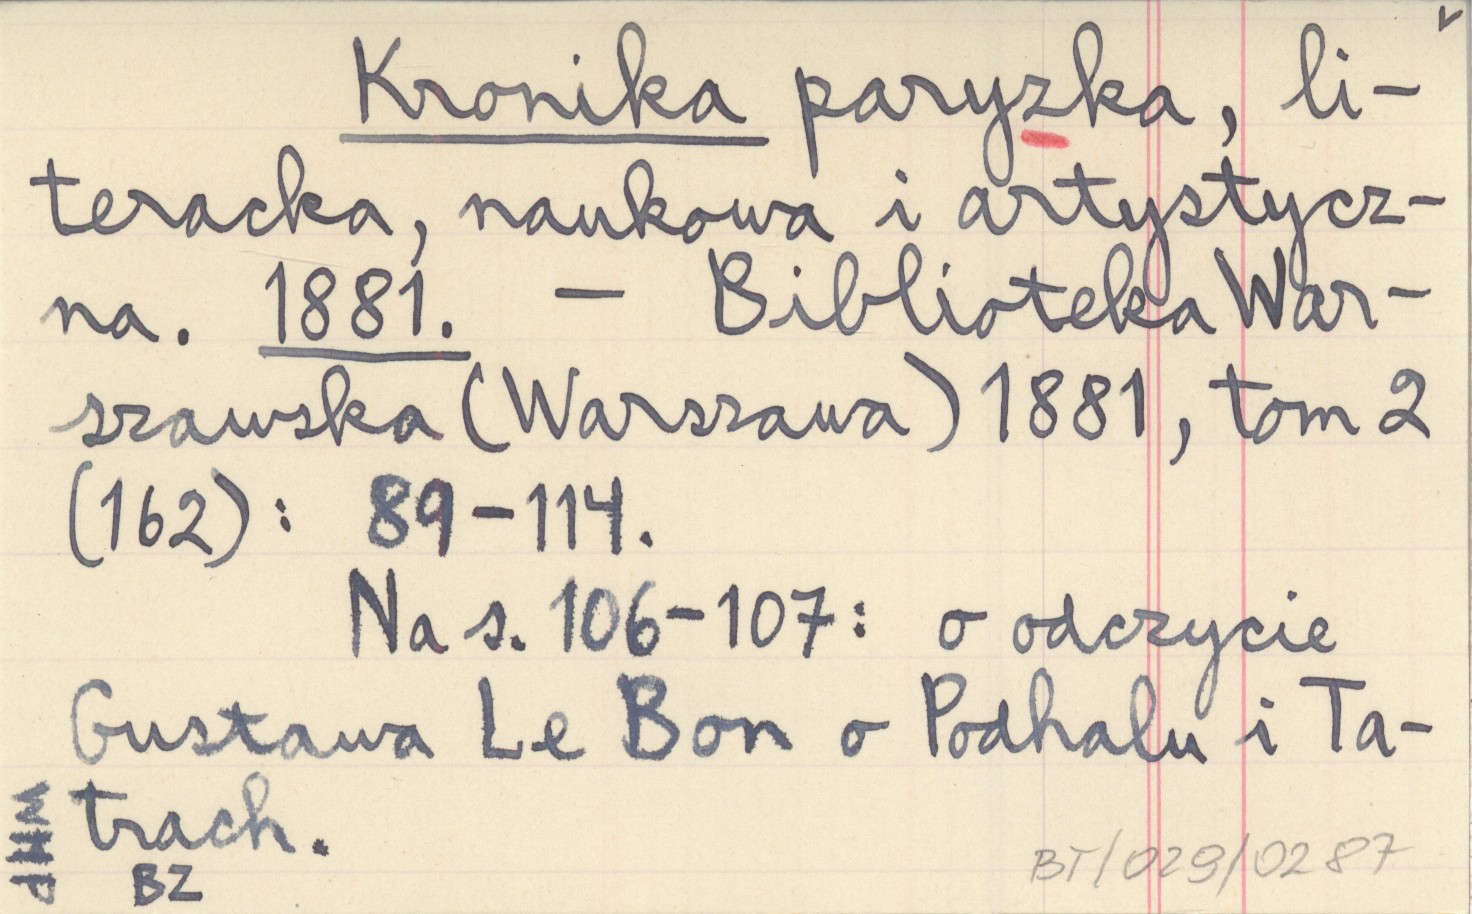 Kronika paryzka, li-
teracka, naukowa i artystycz-
na. 1881. — Biblioteka War-
szawska (Warszawa) 1881, tom 2
(162): 89-114.
Na s. 106-107: o odczycie
Gustawa Le Bon o Podhalu i Ta-
trach.
WHP
BZ
BT/029/0287